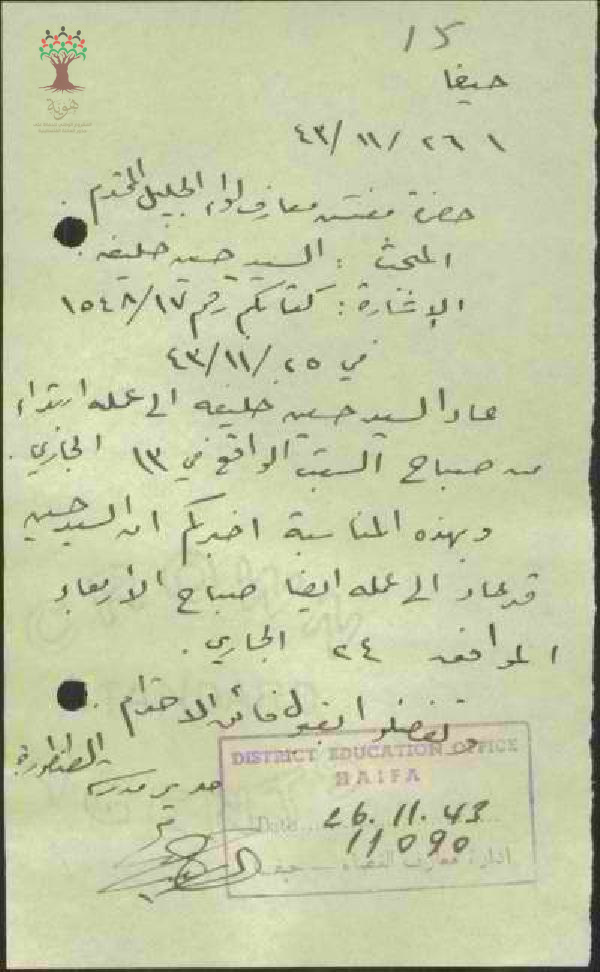 ١٥
حيفا
٢٦ / ١١ / ٤٣
حضرة مفتش معارف لواء الجليل المحترم.
المبحث : السيد حسين خليفه.
الإشارة : كتابكم رقم ١٥٤٨/١٧
في ٢٥ /١١/ ٤٣
عاد السيد حسين خليفه الى عمله ابتداء
من صباح السبت الواقع في ١٣ الجاري.
وبهذه المناسبة اخبركم ان السيد حسين
قد عاد الى عمله ايضا صباح الاربعاء
الموافق ٢٤ الجاري.
وتفضلوا بقبول فائق الاحترام.
مدير مدرسة الطنطورة
DISTRICT EDUCATION OFFICE
HAIFA
Date 26.11.43
11090
ادارة معارف القضاء — حيفا
هوية